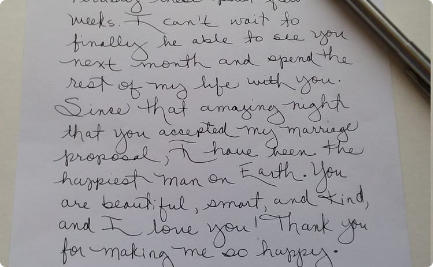 these past few
weeks. I can't wait to
finally be able to see you
next month and spend the
rest of my life with you.
Since that amazing night
that you accepted my marriage
proposal, I have been the
happiest man on Earth. You
are beautiful, smart, and kind,
and I love you! Thank you
for making me so happy.